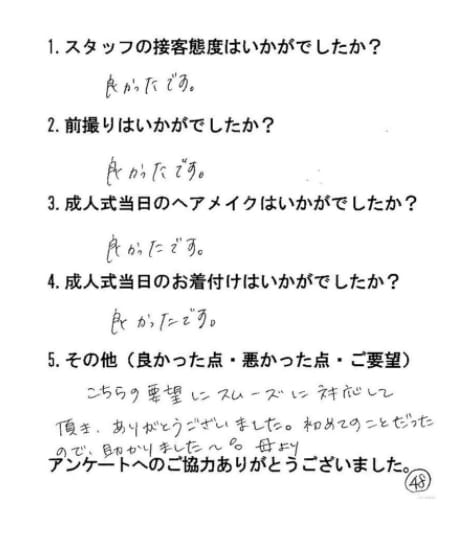 1. スタッフの接客態度はいかがでしたか？
良かったです。
2. 前撮りはいかがでしたか？
良かったです。
3. 成人式当日のヘアメイクはいかがでしたか？
良かったです。
4. 成人式当日のお着付けはいかがでしたか？
良かったです。
5. その他（良かった点・悪かった点・ご要望）
こちらの要望にスムーズに対応して
頂き、ありがとうございました。初めてのことだった
ので、助かりました〜。母より
アンケートへのご協力ありがとうございました。
48